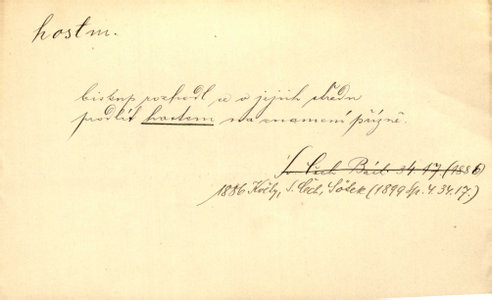 host m.
biskup rozhodl u v jejich středu
prodlít hostem na znamení přízně.
S. Čech Báš. 34 17 (1886)
1886 Květy, S. Čech, Šotek (1899 Sp. 4. 34. 17.)